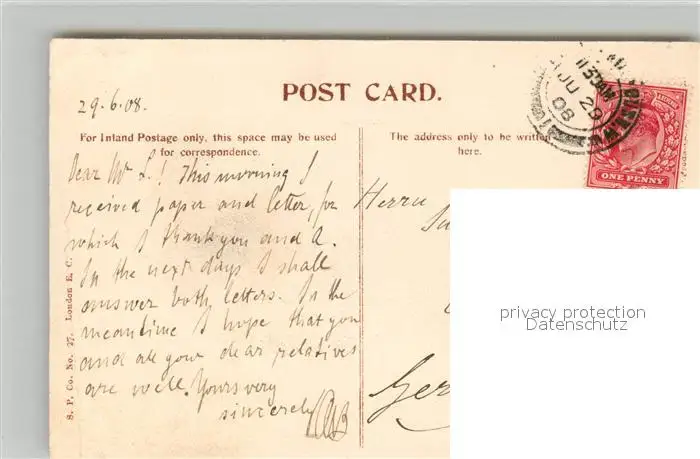 POST CARD.
29.6.08.
For Inland Postage only, this space may be used
for correspondence.
The address only to be written
here.
Dear Mr L.! This morning I
received paper and letter, for
which I thank you and A.
In the next days I shall
answer both letters. In the
meantime I hope that you
and all your dear relatives
are well. Yours very
sincerely
Herrn
Ger
S. P. Co. No. 27. London E. C.
JU 29
08
ONE PENNY
privacy protection
Datenschutz